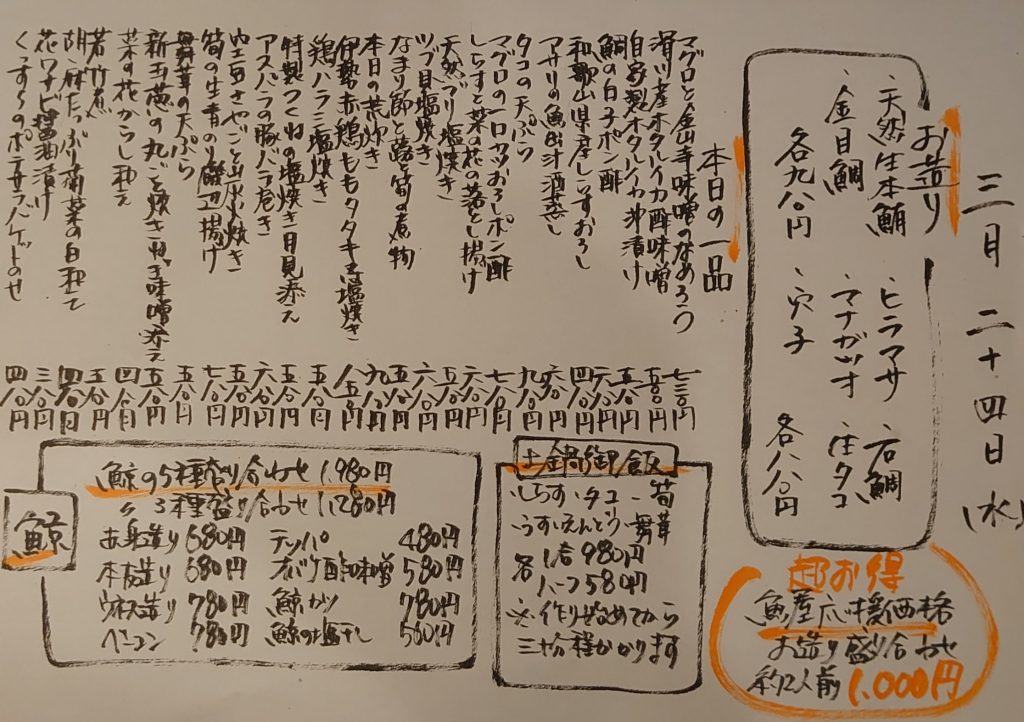 三月二十四日(水)
お造り
・天然生本鮪 ・ヒラマサ ・石鯛
・金目鯛 ・マナガツオ ・生タコ
各九八〇円 ・穴子 各八八〇円
本日の一品
マグロと金山寺味噌のなめろう 七三〇円
滑川産ホタルイカ酢味噌 五八〇円
自家製ホタルイカ沖漬け 五八〇円
鯛の白子ポン酢 六八〇円
和歌山県産しらすおろし 四八〇円
アサリの魚出汁酒蒸し 六八〇円
タコの天ぷら 九八〇円
マグロの一口カツおろしポン酢 七八〇円
しらすと菜の花の落とし揚げ 六八〇円
天然ブリ塩焼き
ツブ貝塩焼き
なまり節と蕗と筍の煮物
本日の荒炊き
伊勢赤鶏ももタタキ又は塩焼き
鶏ハラミ塩焼き
特製つくねの塩焼き月見添え
アスパラの豚バラ巻き
空豆さやごと炭火焼き
筍の生青のり磯辺揚げ
舞茸の天ぷら 五八〇円
新玉葱の丸ごと焼きねぎ味噌添え 五八〇円
菜の花からし和え 四八〇円
若竹煮 五八〇円
胡麻たっぷり蒲菜の白和え 四八〇円
花ワサビ醤油漬け 三八〇円
くっす〜のポテサラバゲットのせ 四八〇円
土鍋御飯
・しらす・タコ・筍
・うすいえんどう・舞茸
各 1合980円
ハーフ580円
※作りはじめてから
三十分程かかります
鯨
鯨の5種盛り合わせ 1,980円
〃 3種盛り合わせ 1,280円
赤身造り 680円 テッパ 480円
本皮造り 680円 オバケ酢味噌 580円
ウネス造り 780円 鯨カツ 780円
ベーコン 780円 鯨の塩干し 580円
超お得
魚屋応援価格
お造り盛り合わせ
約2人前 1,000円